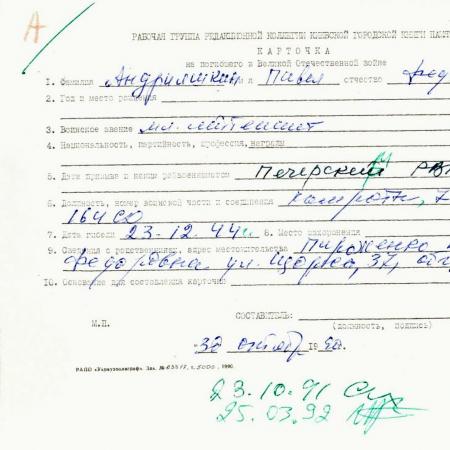 А
РАБОЧАЯ ГРУППА РЕДАКЦИОННОЙ КОЛЛЕГИИ КИЕВСКОЙ ГОРОДСКОЙ КНИГИ ПАМЯТ
КАРТОЧКА
на погибшего в Великой Отечественной войне
1. Фамилия Андрияшкин Имя Павел отчество Фед
2. Год и место рождения
3. Воинское звание мл. лейтенант
4. Национальность, партийность, профессия, награды
5. Дата призыва и каким райвоенкоматом Печерский РВ
6. Должность, номер воинской части и соединения 7
164 СД
7. Дата гибели 23-12.44 г. 8. Место захоронения
9. Сведения о родственниках, адрес местожительства Пироженко
Федоровна ул. Щорса, 37,
10. Основание для составления карточки
СОСТАВИТЕЛЬ:
М.П. (должность, подпись)
"30" октябр 1990.
РАПО «Укрвузполиграф». Зак. № т. 5000, 1990.
23.10.91
25.03.92